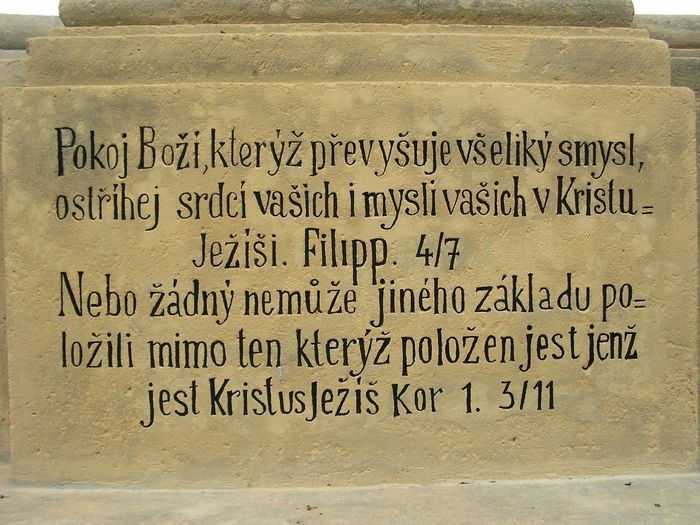 Pokoj Boží, kterýž převyšuje všeliký smysl,
ostříhej srdcí vašich i myslí vašich v Kristu=
Ježíši. Filipp. 4/7
Nebo žádný nemůže jiného základu po=
ložili mimo ten kterýž položen jest jenž
jest Kristus Ježíš Kor 1. 3/11